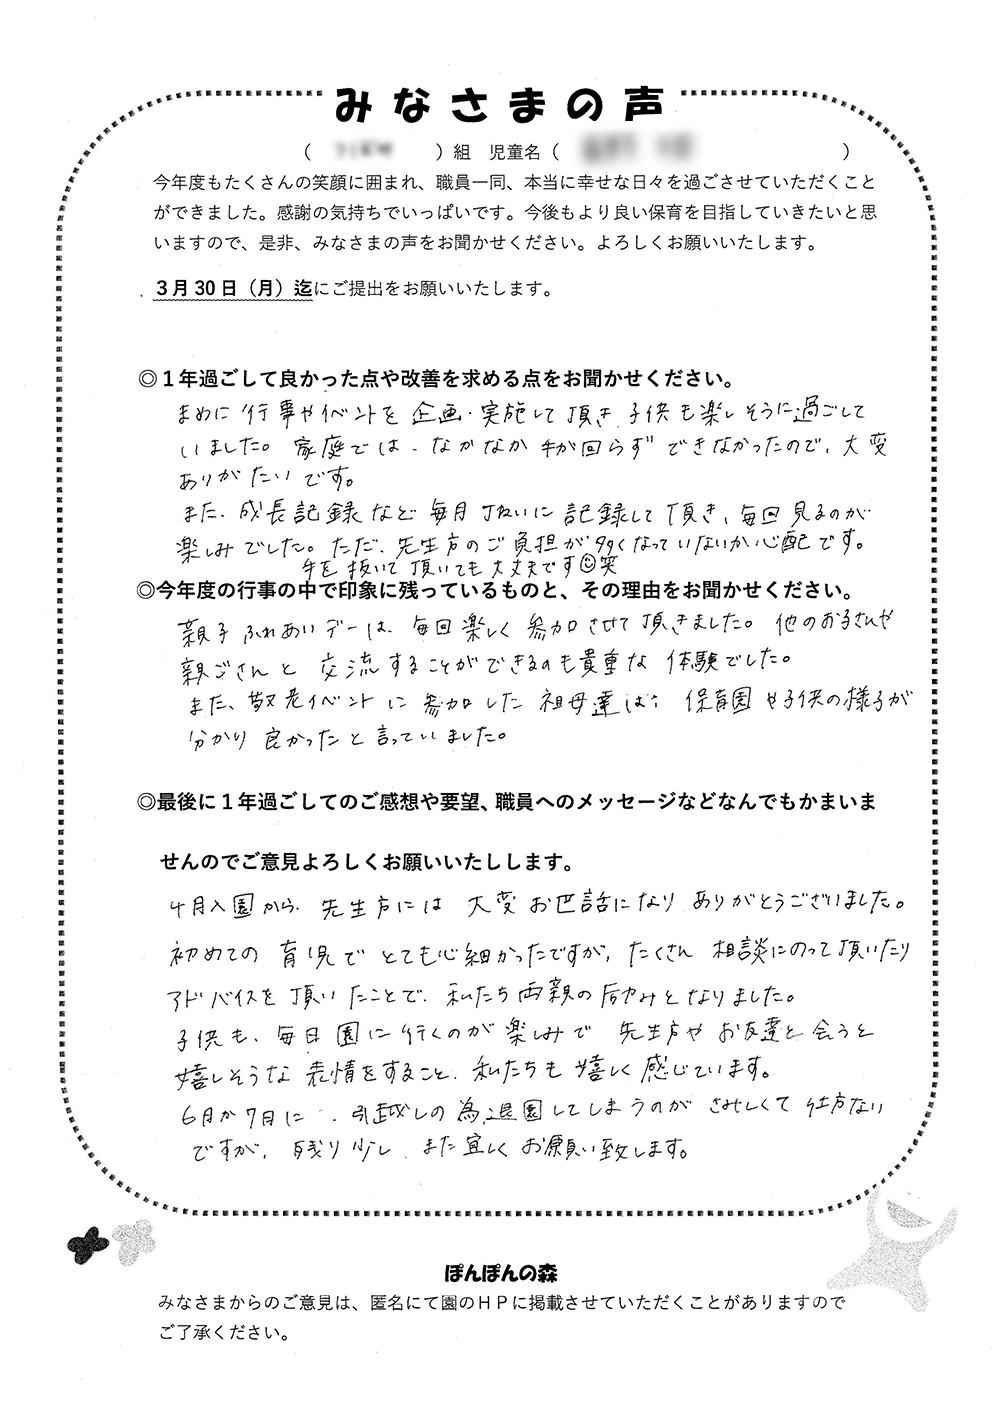 みなさまの声
（　　　）組　児童名（　　　　　　）
今年度もたくさんの笑顔に囲まれ、職員一同、本当に幸せな日々を過ごさせていただくこと
ができました。感謝の気持ちでいっぱいです。今後もより良い保育を目指していきたいと思
いますので、是非、みなさまの声をお聞かせください。よろしくお願いいたします。
３月30日（月）迄にご提出をお願いいたします。
◎１年過ごして良かった点や改善を求める点をお聞かせください。
まめに行事やイベントを企画・実施して頂き、子供も楽しそうに過ごして
いました。家庭では、なかなか手が回らずできなかったので、大変
ありがたいです。
また、成長記録など毎月丁ねいに記録して頂き、毎回見るのが
楽しみでした。ただ、先生方のご負担が多くなっていないか心配です。
手を抜いて頂いても大丈夫です☺笑
◎今年度の行事の中で印象に残っているものと、その理由をお聞かせください。
親子ふれあいデーは、毎回楽しく参加させて頂きました。他のお子さんや
親ごさんと交流することができるのも貴重な体験でした。
また、敬老イベントに参加した祖母達は、保育園や子供の様子が
分かり良かったと言っていました。
◎最後に１年過ごしてのご感想や要望、職員へのメッセージなどなんでもかまいま
せんのでご意見よろしくお願いいたしします。
4月入園から、先生方には大変お世話になりありがとうございました。
初めての育児でとても心細かったですが、たくさん相談にのって頂いたり
アドバイスを頂いたことで、私たち両親の励みとなりました。
子供も、毎日園に行くのが楽しみで先生方やお友達と会うと
嬉しそうな表情をすること、私たちも嬉しく感じています。
6月か7月に、引越しの為退園してしまうのがさみしくて仕方ない
ですが、残り少し、また宜しくお願い致します。
ぽんぽんの森
みなさまからのご意見は、匿名にて園のＨＰに掲載させていただくことがありますので
ご了承ください。